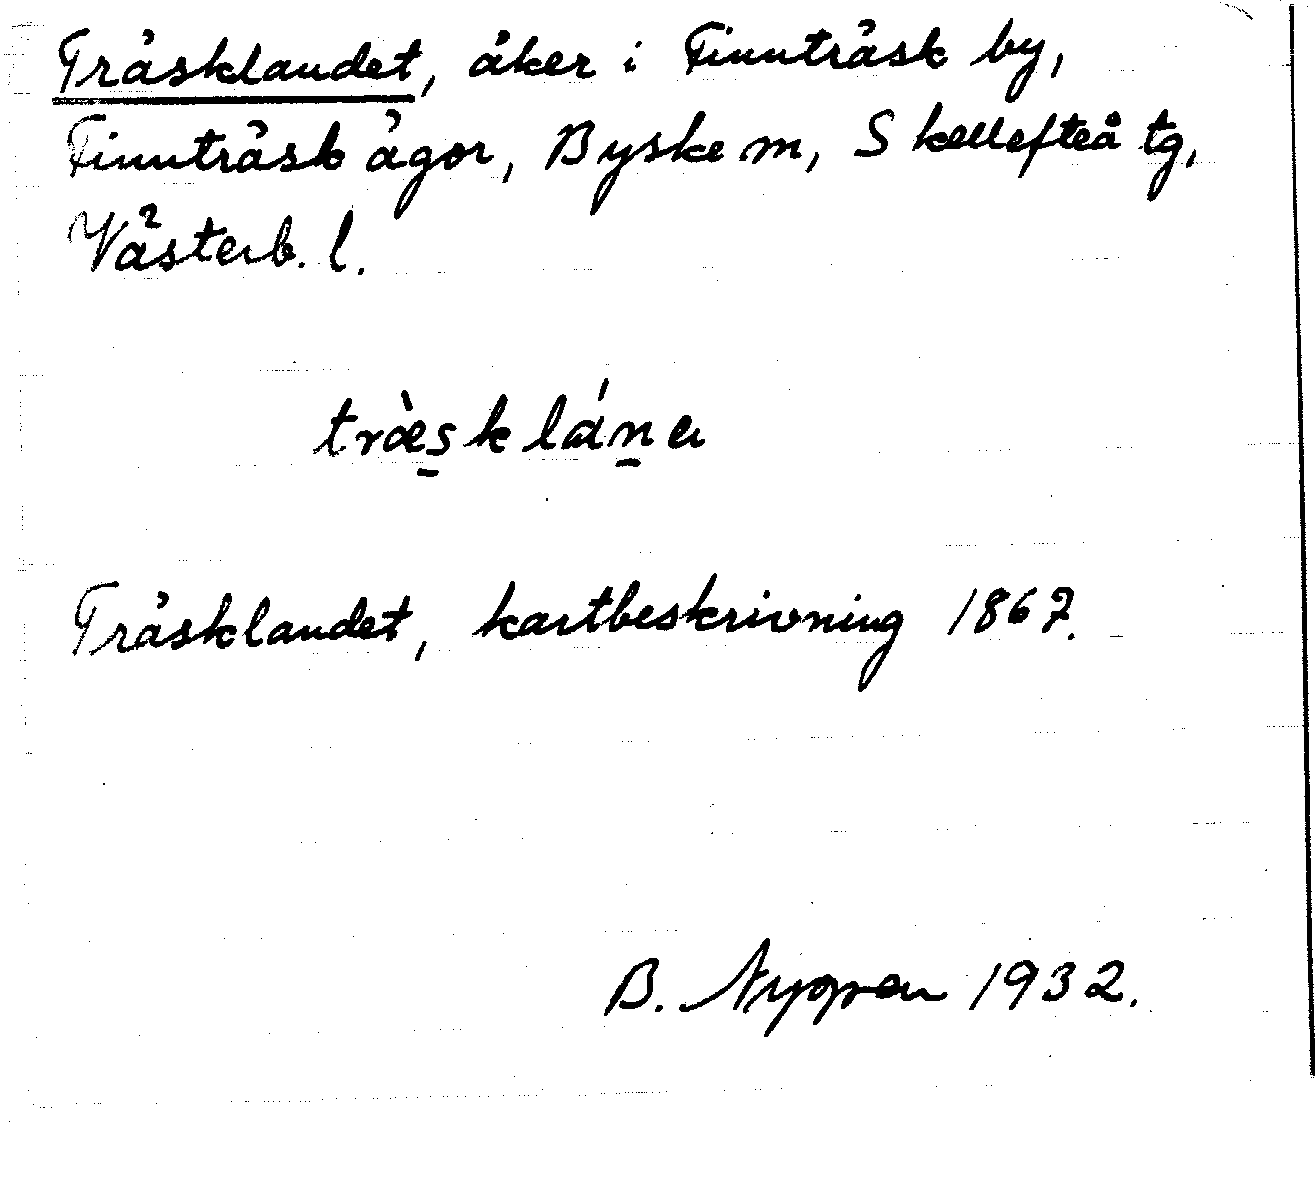 Träsklandet, åker i Finnträsk by,
Finnträsk ägor, Byske m, Skellefteå tg,
Västerb. l.
træ̀s̠klán̠a
Träsklandet, kartbeskrivning 1867.
B. Nygren 1932.